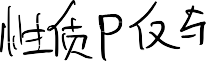 性质P仅与